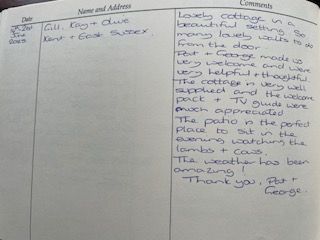 Date Name and Address Comments
June Gill, Kay + Clive
2023 Kent + East Sussex
Lovely cottage in a
beautiful setting. So
many lovely walks to do
from the door.
Pat + George made us
very welcome and were
very helpful + thoughtful.
The cottage is very well
supplied and the welcome
pack + TV guide were
much appreciated
The patio is the perfect
place to sit in the
evening watching the
lambs + cows.
The weather has been
amazing!
Thank you, Pat +
George.